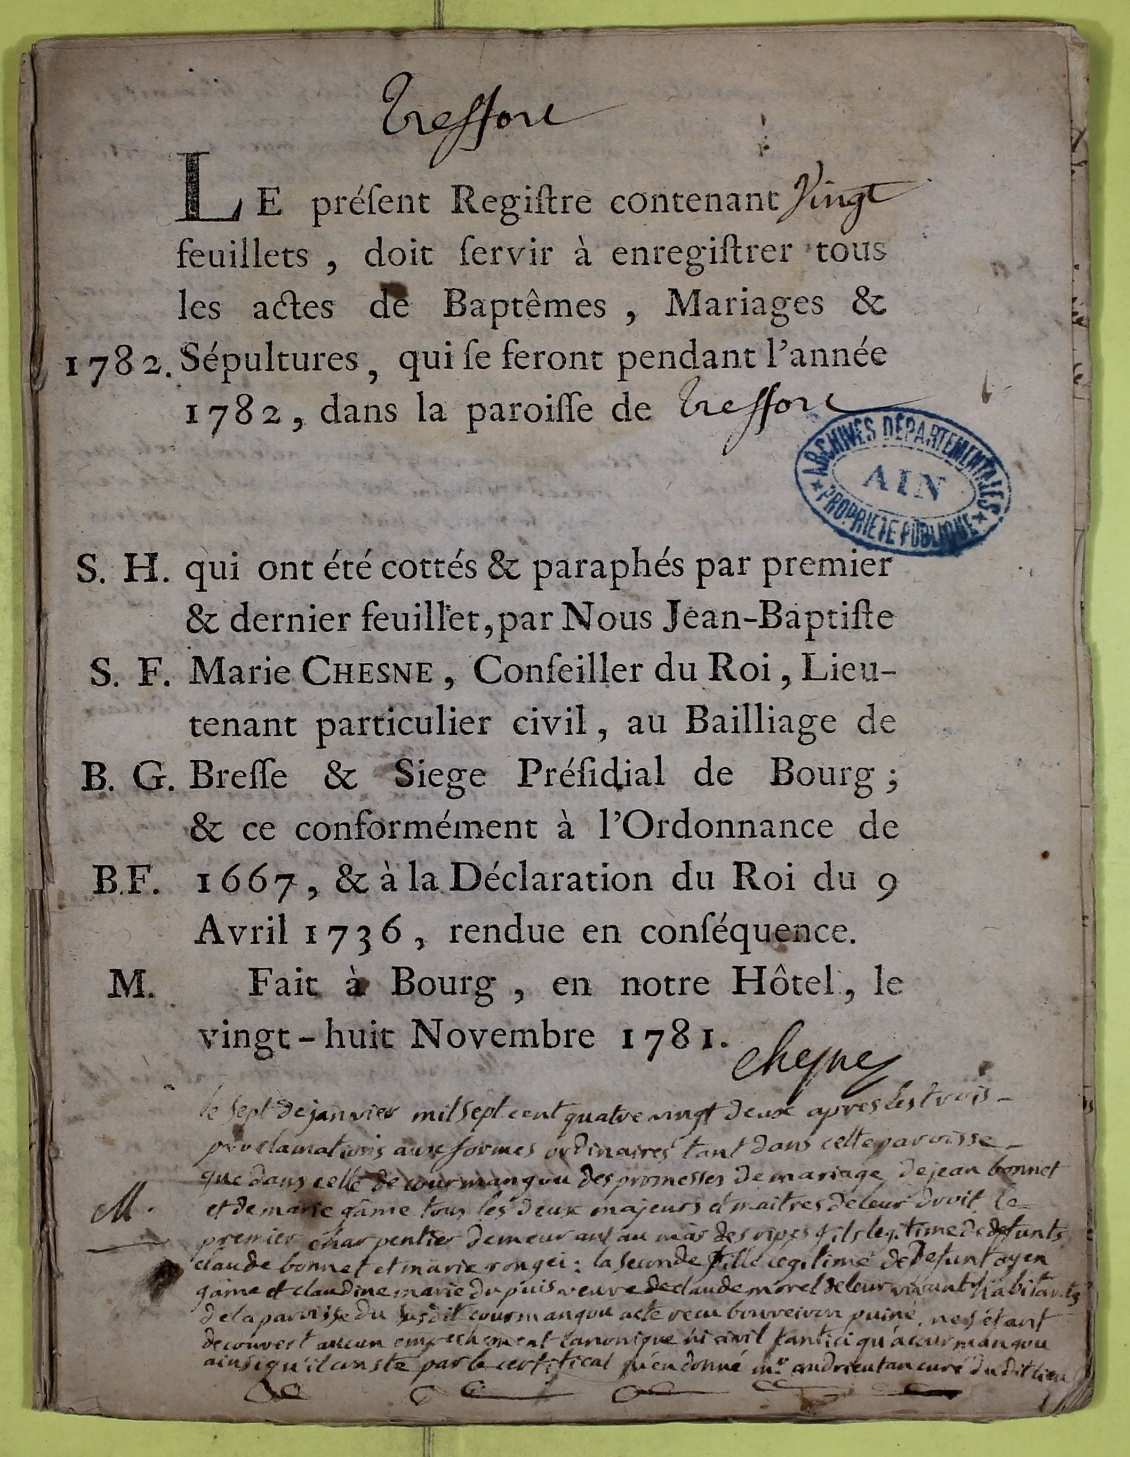 Treffort
LE préſent Regiſtre contenant Vingt
feuillets, doit ſervir à enregiſtrer tous
les actes de Baptêmes, Mariages &
1782. Sépultures, qui ſe feront pendant l'année
1782, dans la paroiſſe de Treffort
ARCHIVES DÉPARTEMENTALES
AIN
PROPRIETE PUBLIQUE
S. H. qui ont été cottés & paraphés par premier
& dernier feuillet, par Nous Jean-Baptiſte
S. F. Marie CHESNE, Conſeiller du Roi, Lieu-
tenant particulier civil, au Bailliage de
B. G. Breſſe & Siege Préſidial de Bourg;
& ce conformément à l'Ordonnance de
B.F. 1667, & à la Déclaration du Roi du 9
Avril 1736, rendue en conſéquence.
M. Fait à Bourg, en notre Hôtel, le
vingt-huit Novembre 1781.
chesne
le sept de janvier mil sept cent quatre vingt deux apres les trois
proclamations aux formes ordinaires tant dans cette paroisse
que dans celle de courmangou des promesses de mariage de jean bonnet
M. et de marie gâme tous les deux majeurs et maitres de leur droit le
premier charpentier demeurant au mas des ripes fils legitime de defunts
claude bonnet et marie rongei: la seconde fille legitime de defunt oyen
gâme et claudine marie dupuis veuve de claude morel de leur vivant habitants
de la paroisse du susdit courmangou acte recu bouveiron puiné, ne s'étant
decouvert aucun empechement canonique ni civil tant ici qu'a courmangou
ainsi qu'il conste par le certificat qu'en donné mre andrieutan curé du dit lieu